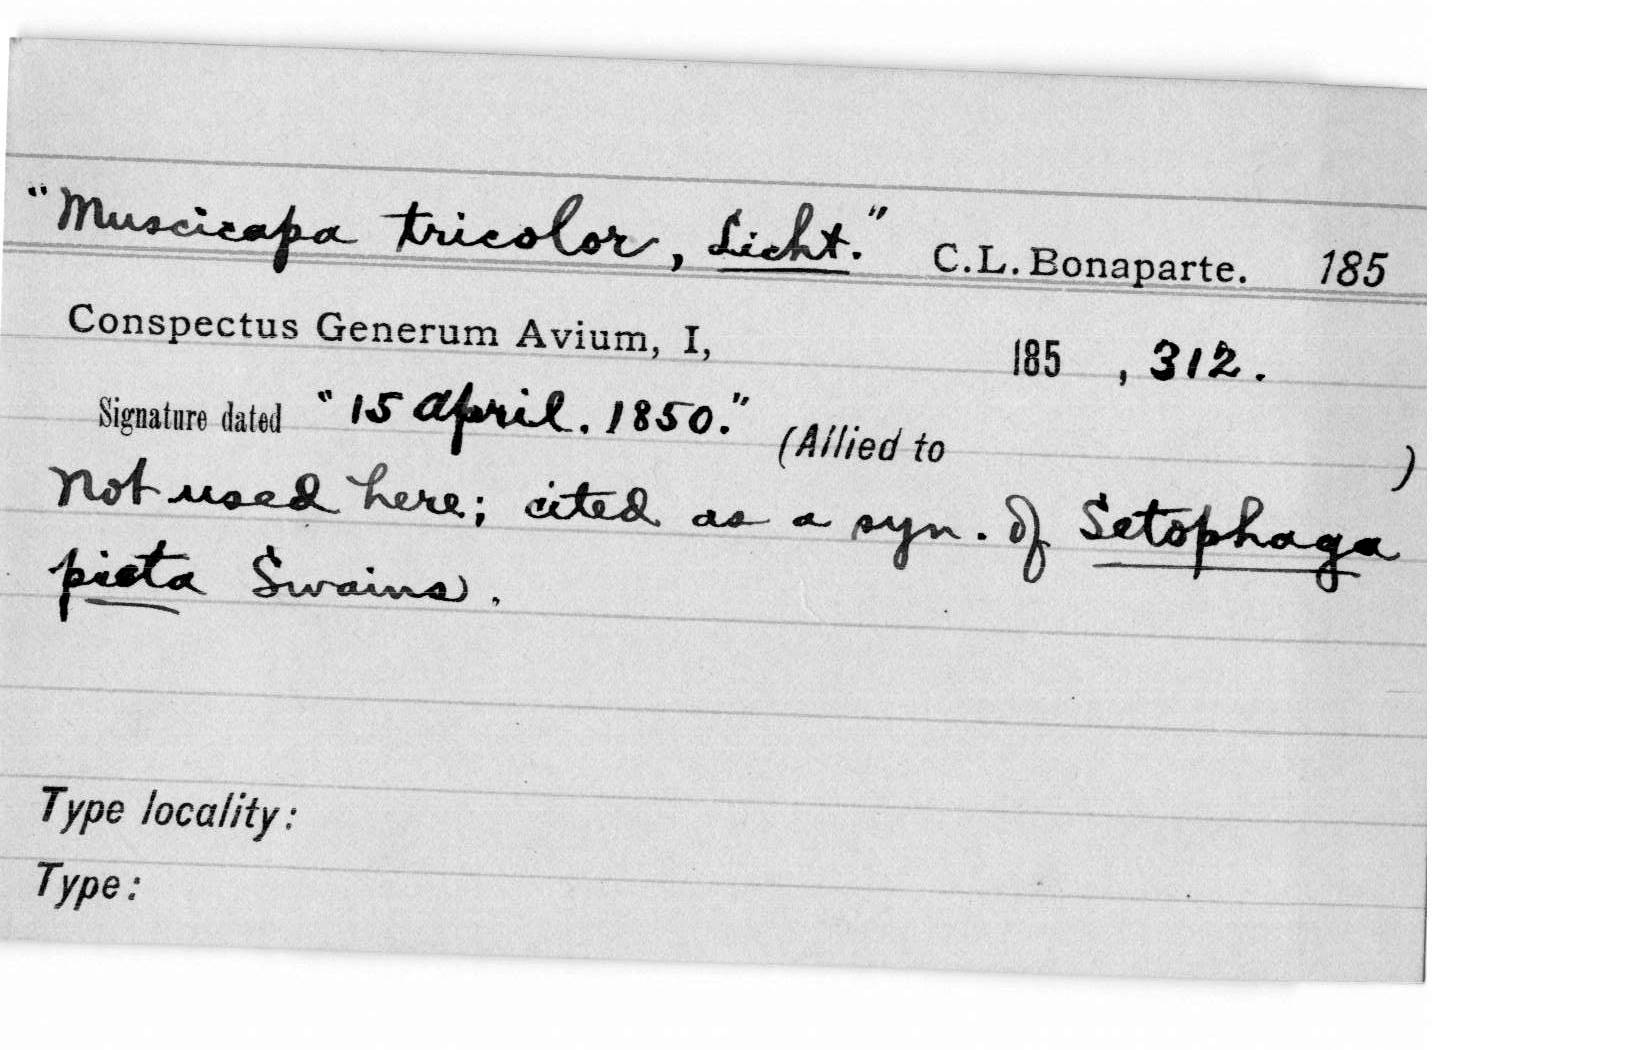 "Muscicapa tricolor, Licht." C.L. Bonaparte. 185
Conspectus Generum Avium, I, 185 , 312.
Signature dated "15 April. 1850." (Allied to )
Not used here; cited as a syn. of Setophaga
picta Swains.
Type locality:
Type: